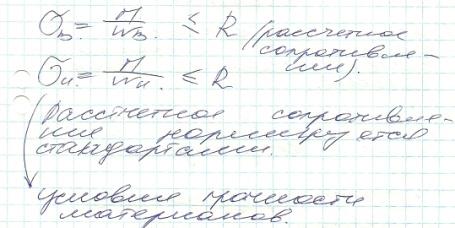 σв. = M/Wв. ≤ R (рассчетное
сопротивле-
ние).
σн. = M/Wн. ≤ R
Рассчетное сопротивле-
ние нормируется
стандартами.
условия прочности
материалов.